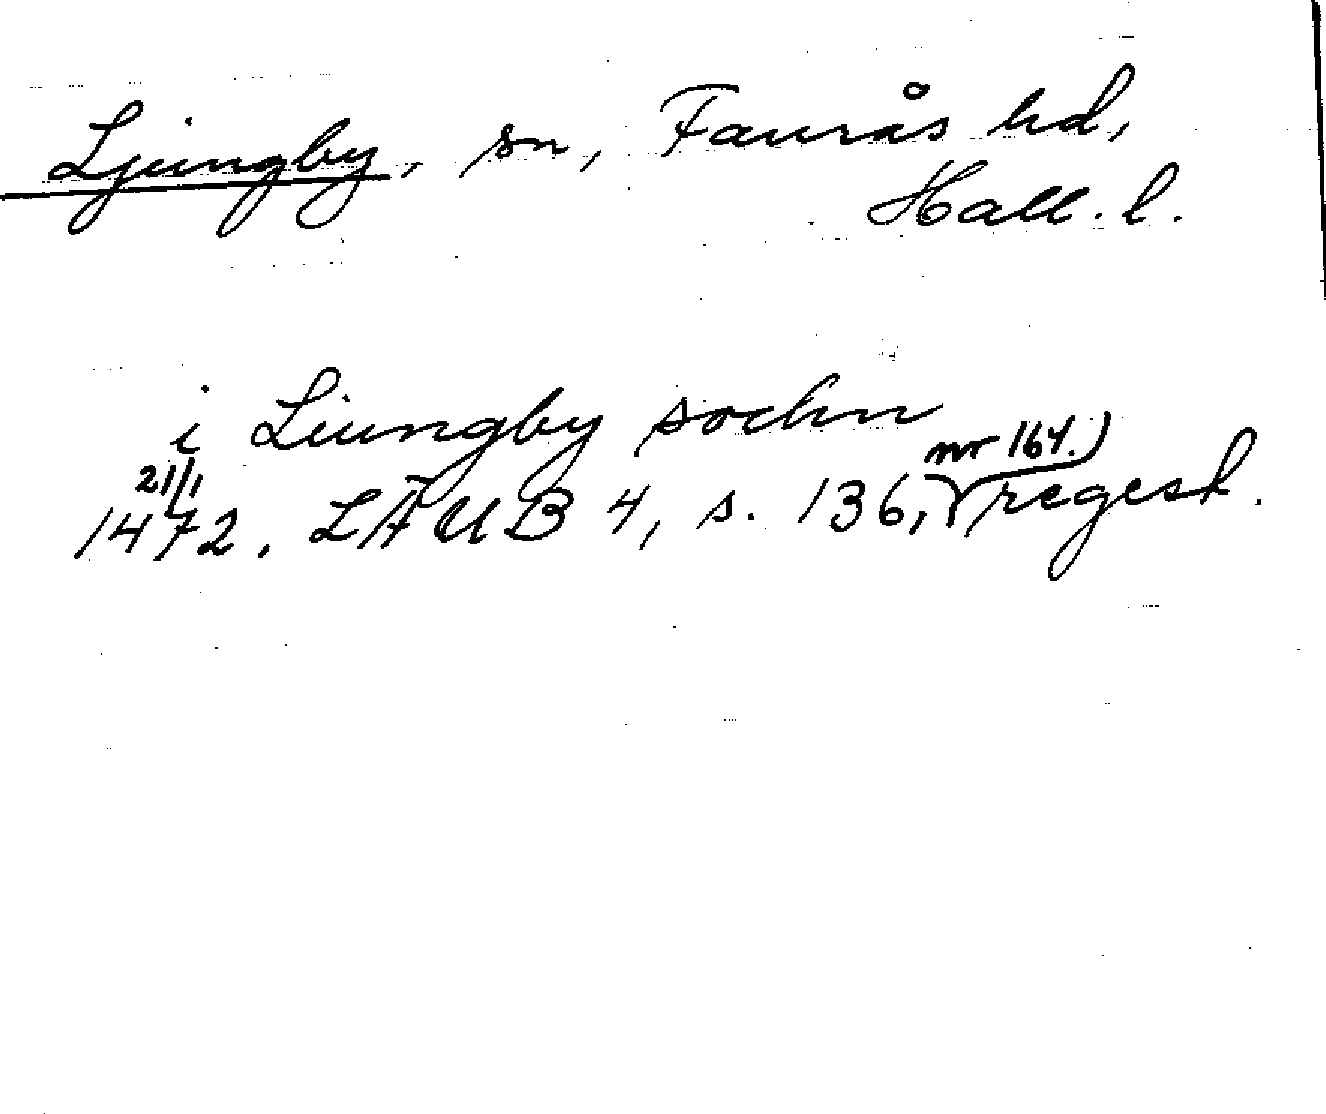 Ljungby, sn, Faurås hd,
Hall. l.
i Liungby sochn
21/1 1472. LÄUB 4, s. 136, nr 167.) regest.